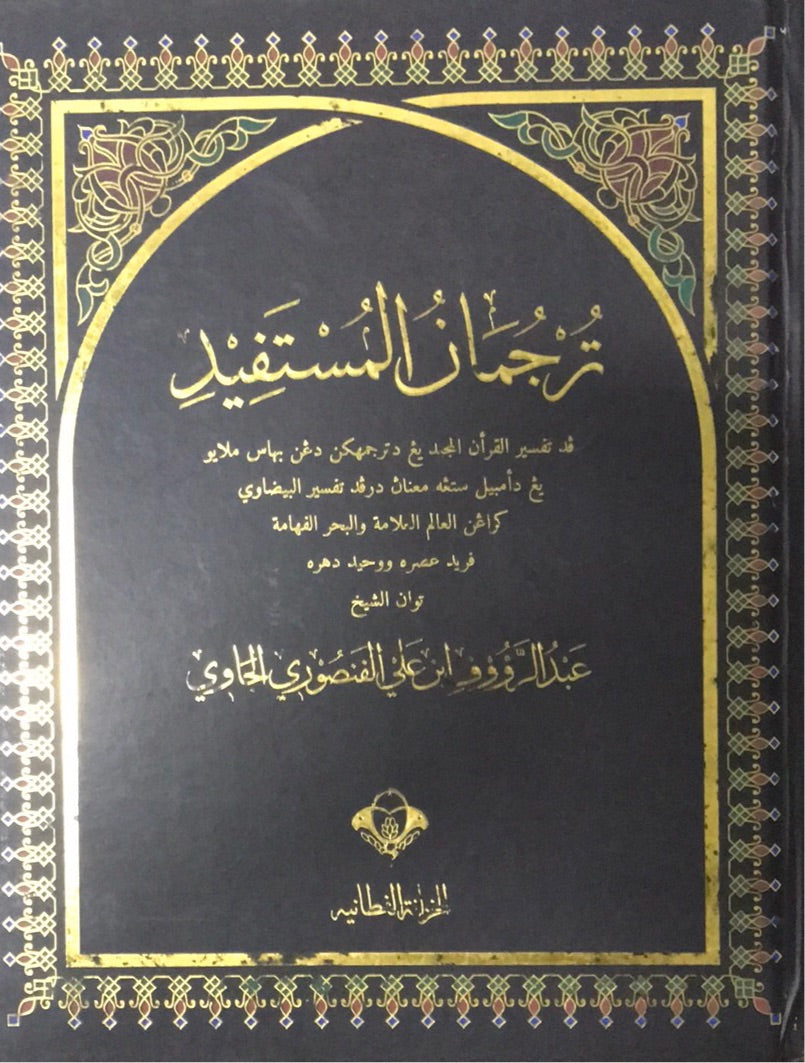 تُرْجُمَانُ الْمُسْتَفِيْدِ
ڤد تفسير القرأن المجد يڠ دترجمهكن دڠن بهاس ملايو
يڠ دأمبيل ستڠه معنان درڤد تفسير البيضاوي
كراڠن العالم العلامة والبحر الفهامة
فريد عصره ووحيد دهره
توان الشيخ
عَبْدُ الرَّؤُوْفِ ابن عَلِي الفَنصُوْرِي الجَاوِي
الخزانة الفطانيه